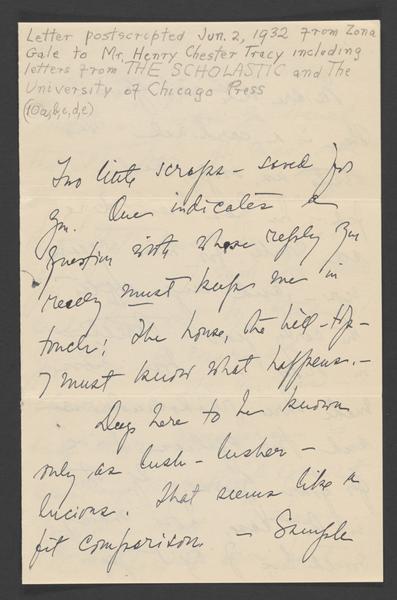 Letter postscripted Jun. 2, 1932 from Zona
Gale to Mr. Henry Chester Tracy including
letters from THE SCHOLASTIC and The
University of Chicago Press
(10a,b,c,d,e)
Two little scraps – saved for
you. One indicates a
question with whose reply you
really must keep me in
touch! The house, the hill-top –
I must know what happens. –
Days here to be known
only as lush – lusher –
lucious. That seems like a
fit comparison – Sample